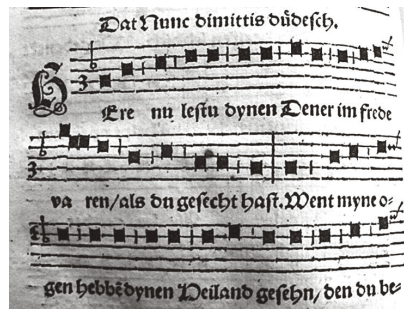 Dat Nunc dimittis düdesch.
HEre nu lestu dynen Dener im frede
va ren/als du gesecht hast. Went myne o⸗
gen hebbē dynen Heiland gesehn/ den du be⸗